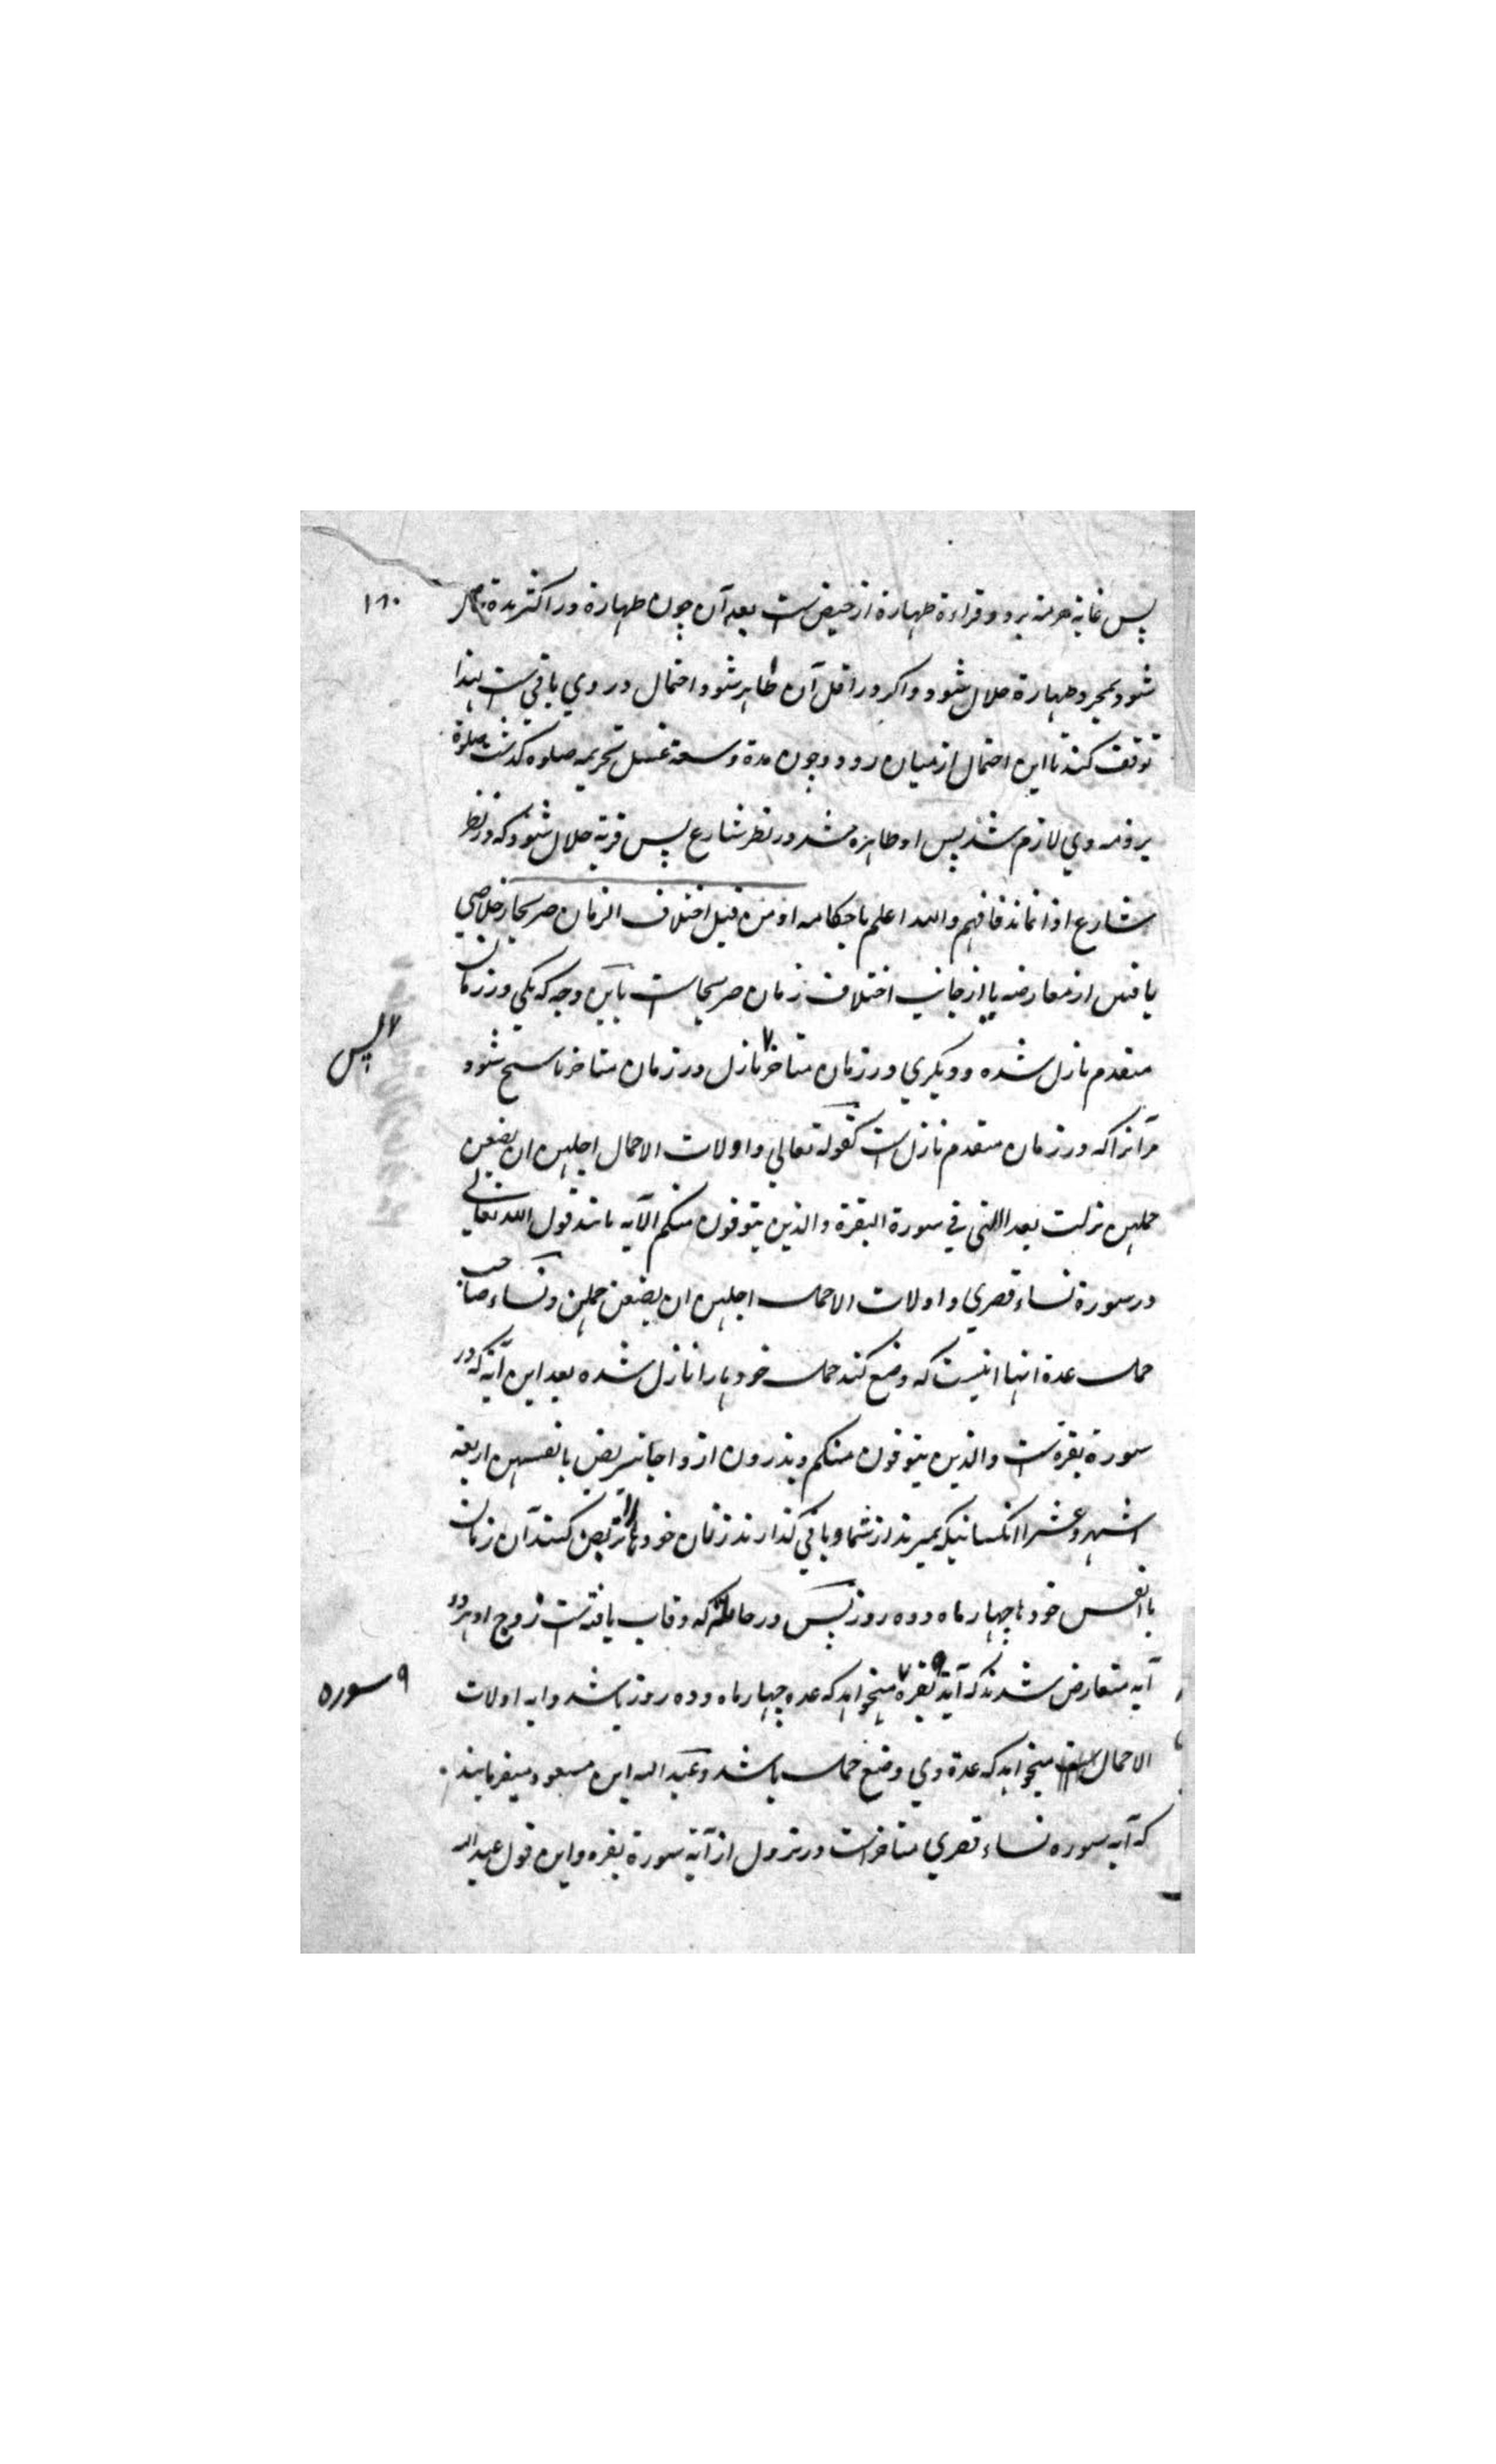 پس غایة حرمة بر دو قراءة طهارة از حیض است بعد آن چون طهارة در اکثر مدة
۱۸۰
شود بمجرد طهارة حلال شود و اکر در اقل آن طاهر شود احتمال در وی باقی است لهذا
توقف کند تا این احتمال از میان رود و چون مدة وسعة غسل تحریمه صلوه کذشت صلوة
بر ذمه وی لازم شد پس او طاهره شد در نظر شارع پس قربة حلال شود که در نظر
شارع اذا نماند فافهم والله اعلم باحکامه او من قبل اختلاف الزمان صریحا یا خلاصی
یافتن از معارضه یا از جانب اختلاف زمان صریحا است باین وجه که یکی در زمان
متقدم نازل شده و دیکری در زمان متاخر ۷ نازل در زمان متاخر ناسخ شود
۷ پس
مر آنرا که در زمان متقدم نازل است کقوله تعالی واولات الاحمال اجلهن ان یضعن
حملهن نزلت بعد التی فی سورة البقرة والذین یتوفون منکم الآیه مانند قول الله تعالی
در سورة نساء قصری واولات الاحمال اجلهن ان یضعن حملهن ونساء صاحب
حمل عدة انها اینست که وضع کند حمل خود ها را نازل شده بعد این آیة که در
سورة بقره است والذین یتوفون منکم ویذرون ازواجا یتربصن بانفسهن اربعة
اشهر وعشرا انکسانیکه بمیرند از شما و باقی کذارند زنان خود ها را تربص کنند آن زنان
با انفس خود ها چهار ماه و ده روز پس در حامله که وفات یافته است زوج او هر دو
آیه متعارض شدند که آیة ۹ بقره میخواهد که عده چهار ماه و ده روز باشد و ایه اولات
۹ سوره
الاحمال میخواهد که عدة وی وضع حمل باشد و عبد الله ابن مسعود میفرمایند
که آیه سوره نساء قصری متاخر است در نزول از آیة سورة بقره و این قول عبد الله